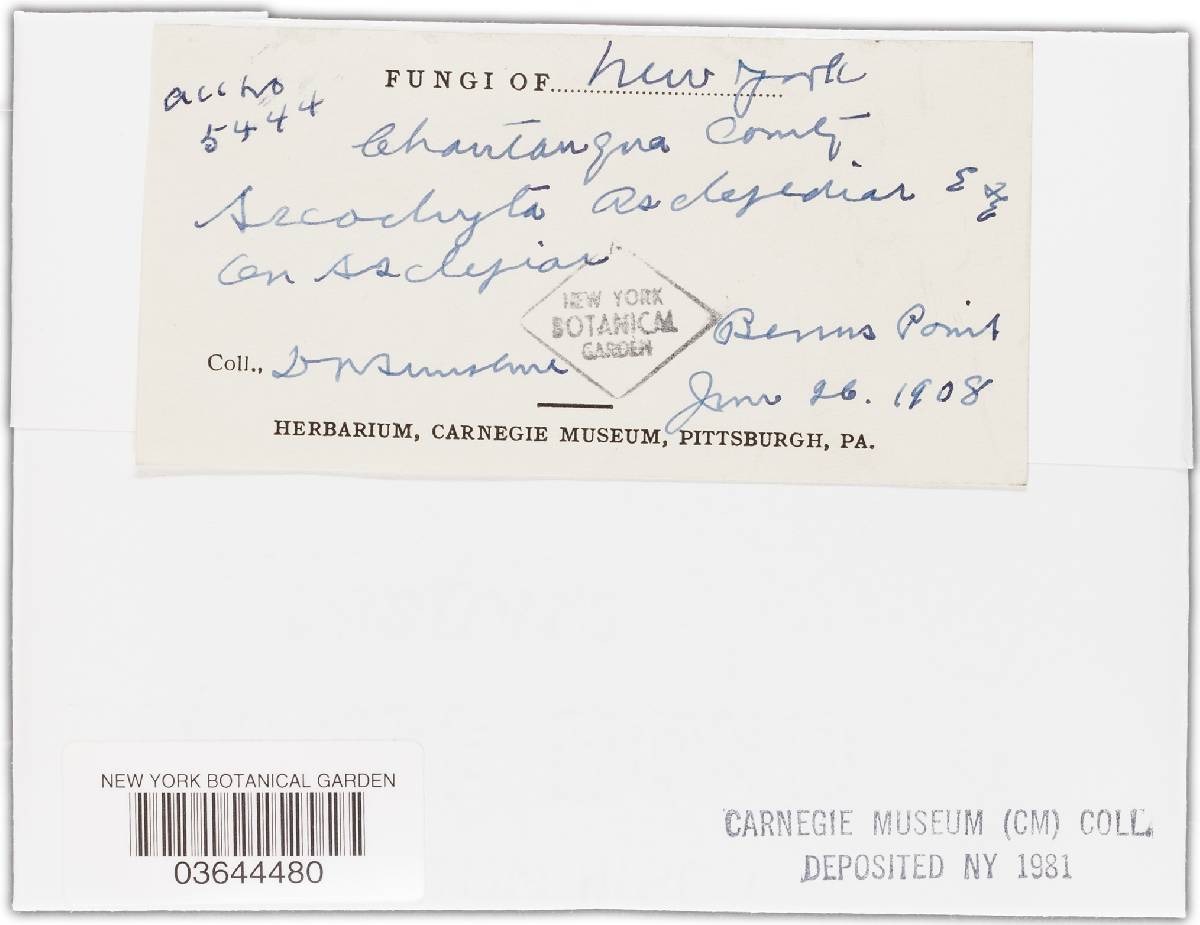 acc no
5444
FUNGI OF New York
Chautauqua County
Ascochyta asclepiadis E & E
On Asclepias
NEW YORK
BOTANICAL
GARDEN
Bemus Point
Coll., D R Sumstine
June 26. 1908
HERBARIUM, CARNEGIE MUSEUM, PITTSBURGH, PA.
NEW YORK BOTANICAL GARDEN
03644480
CARNEGIE MUSEUM (CM) COLL.
DEPOSITED NY 1981